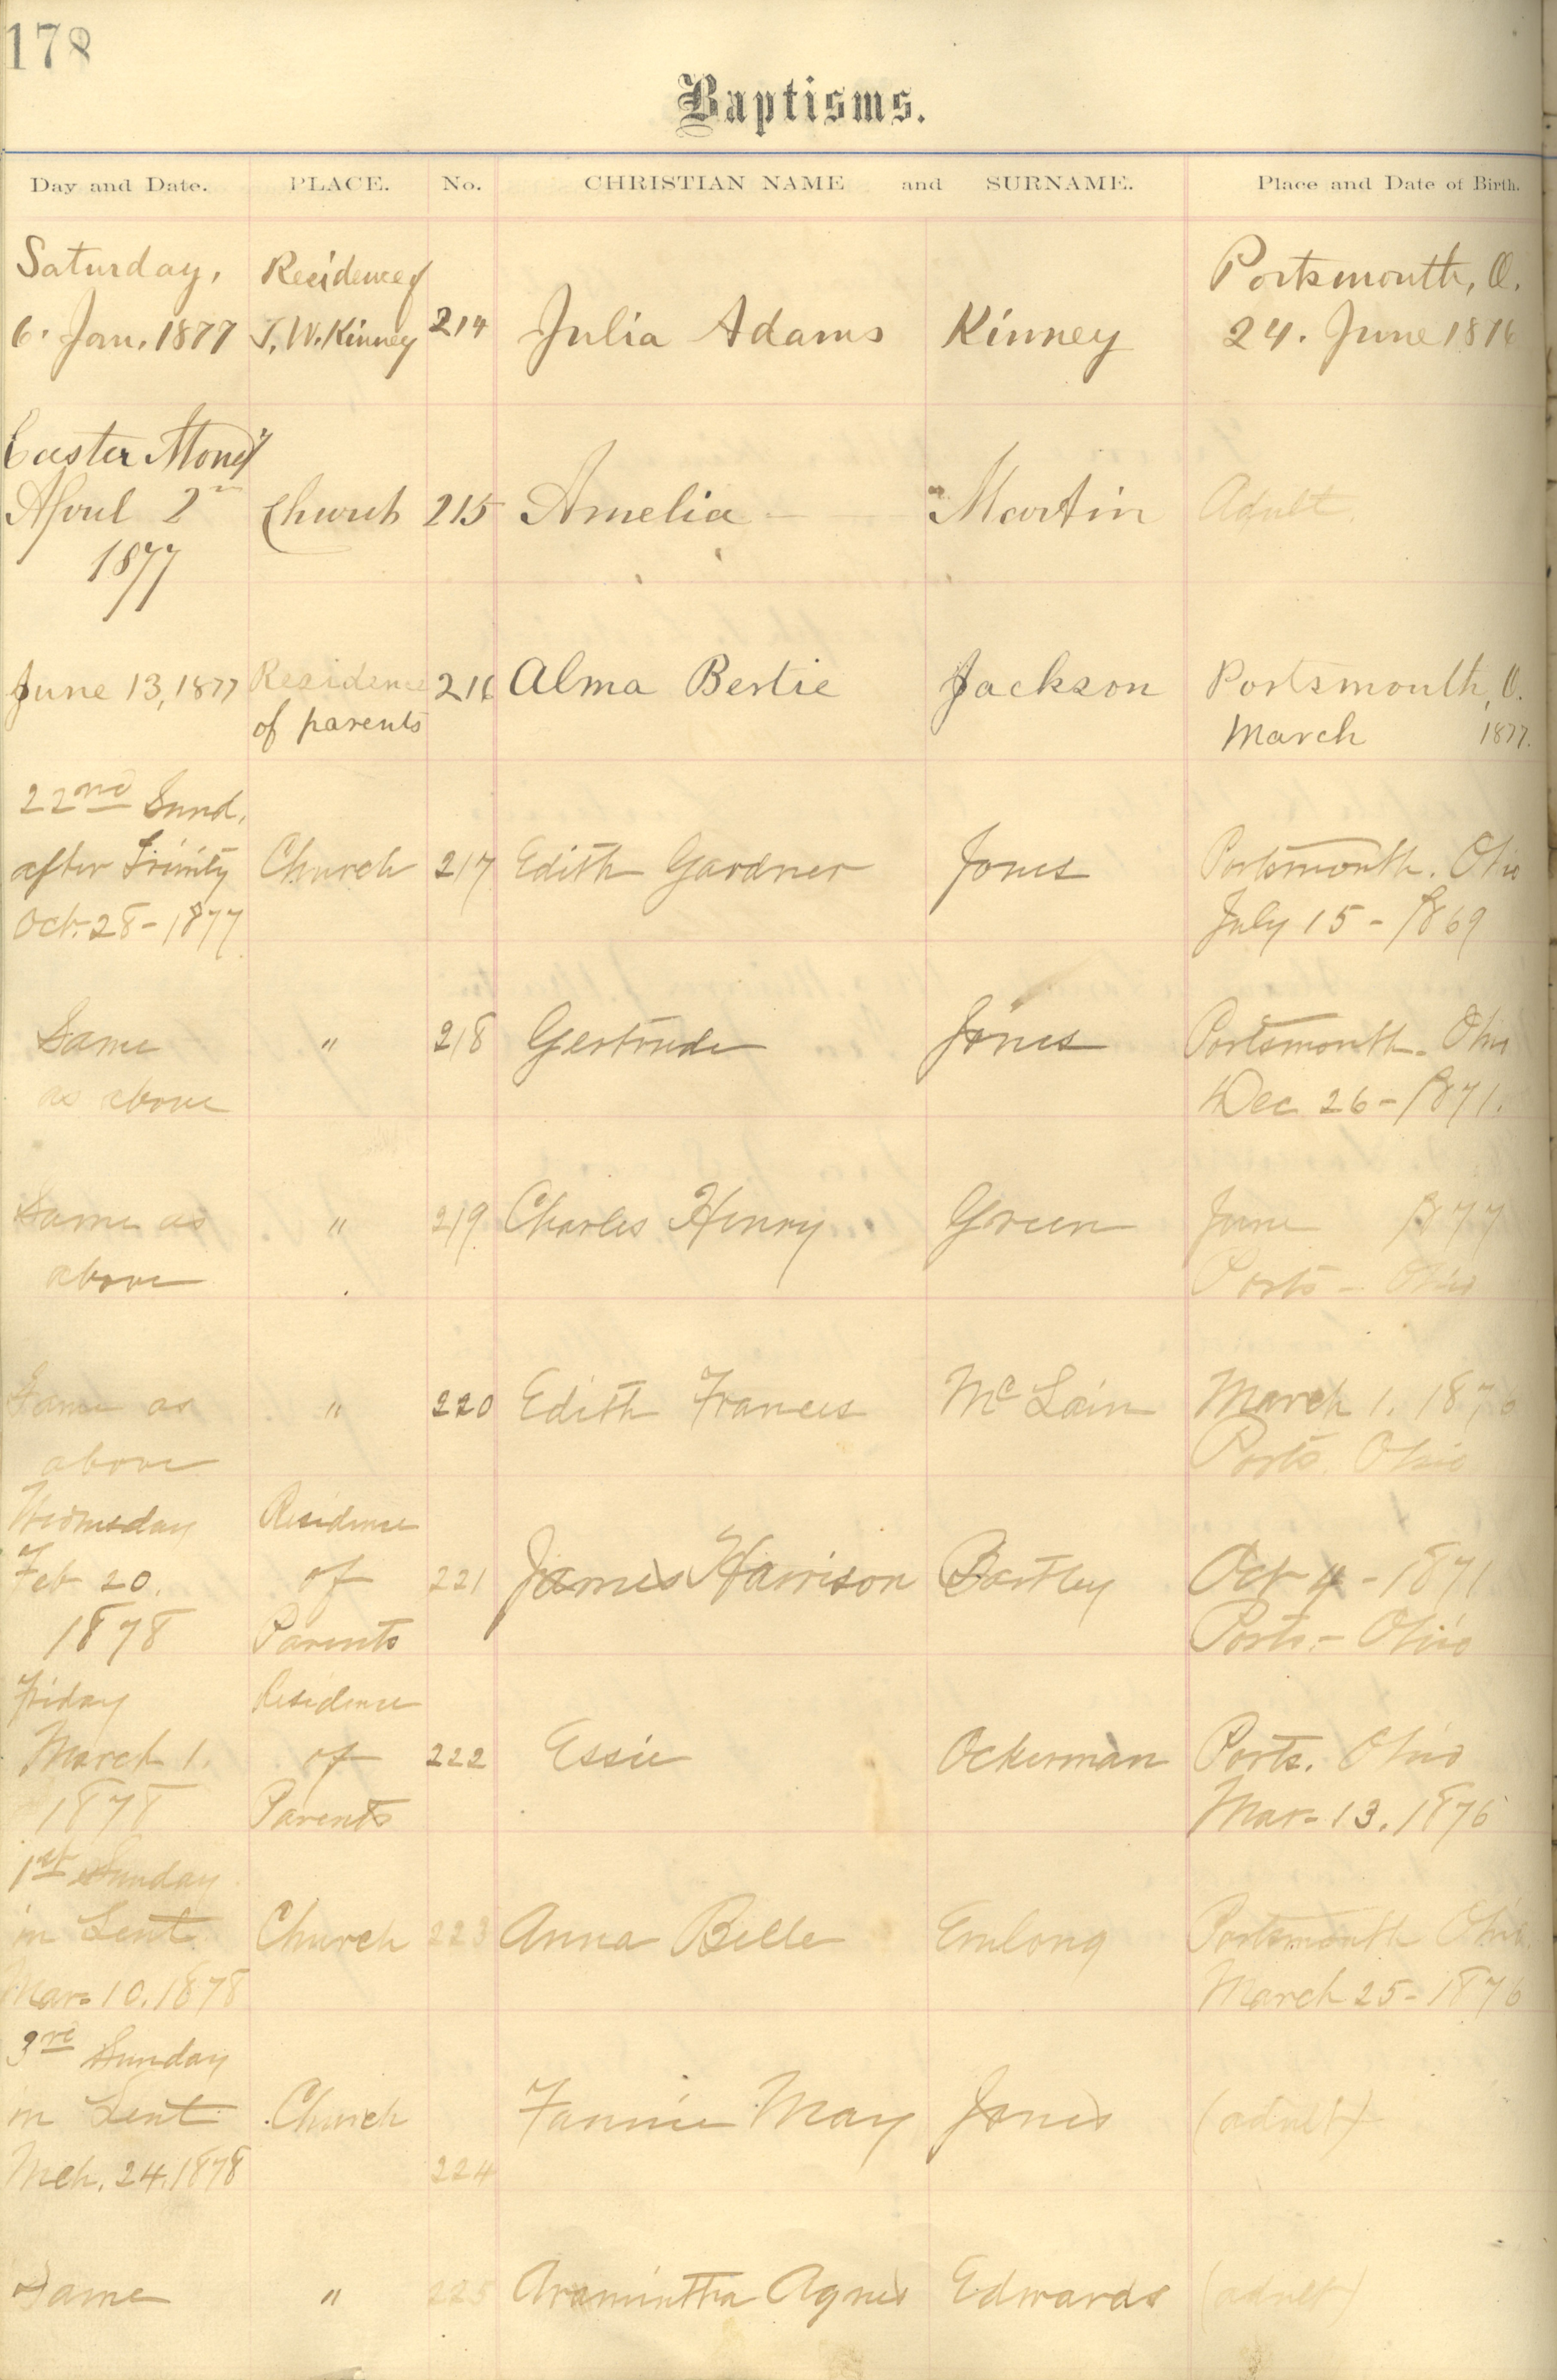 178
Baptisms.
Day and Date. PLACE. No. CHRISTIAN NAME and SURNAME. Place and Date of Birth.
Saturday, Residence of Portsmouth, O.
6. Jan. 1877 J. W. Kinney 214 Julia Adams Kinney 24. June 1876
Easter Mondy
April 2nd Church 215 Amelia Martin Adult
1877
June 13, 1877 Residence 216 Alma Bertie Jackson Portsmouth, O.
of parents March 1877.
22nd Sund.
after Trinity Church 217 Edith Gardner Jones Portsmouth. Ohio
Oct. 28 - 1877 July 15 - 1869
Same " 218 Gertrude Jones Portsmouth. Ohio
as above Dec 26 - 1871.
Same as " 219 Charles Henry Green June 1877
above Ports - Ohio
Same as " 220 Edith Frances McLain March 1. 1876
above Ports. Ohio
Wednesday Residence
Feb 20. of 221 James Harrison Bartley Oct 4 - 1871
1878 Parents Ports. - Ohio
Friday Residence
March 1. of 222 Essie Ockerman Ports. Ohio
1878 Parents Mar. 13. 1876
1st Sunday
in Lent Church 223 Anna Belle Emlong Portsmouth Ohio.
Mar. 10. 1878 March 25 - 1876
3rd Sunday
in Lent Church Fannie May Jones (adult)
Mch. 24. 1878 224
Same " 225 Aramintha Agnes Edwards (adult)